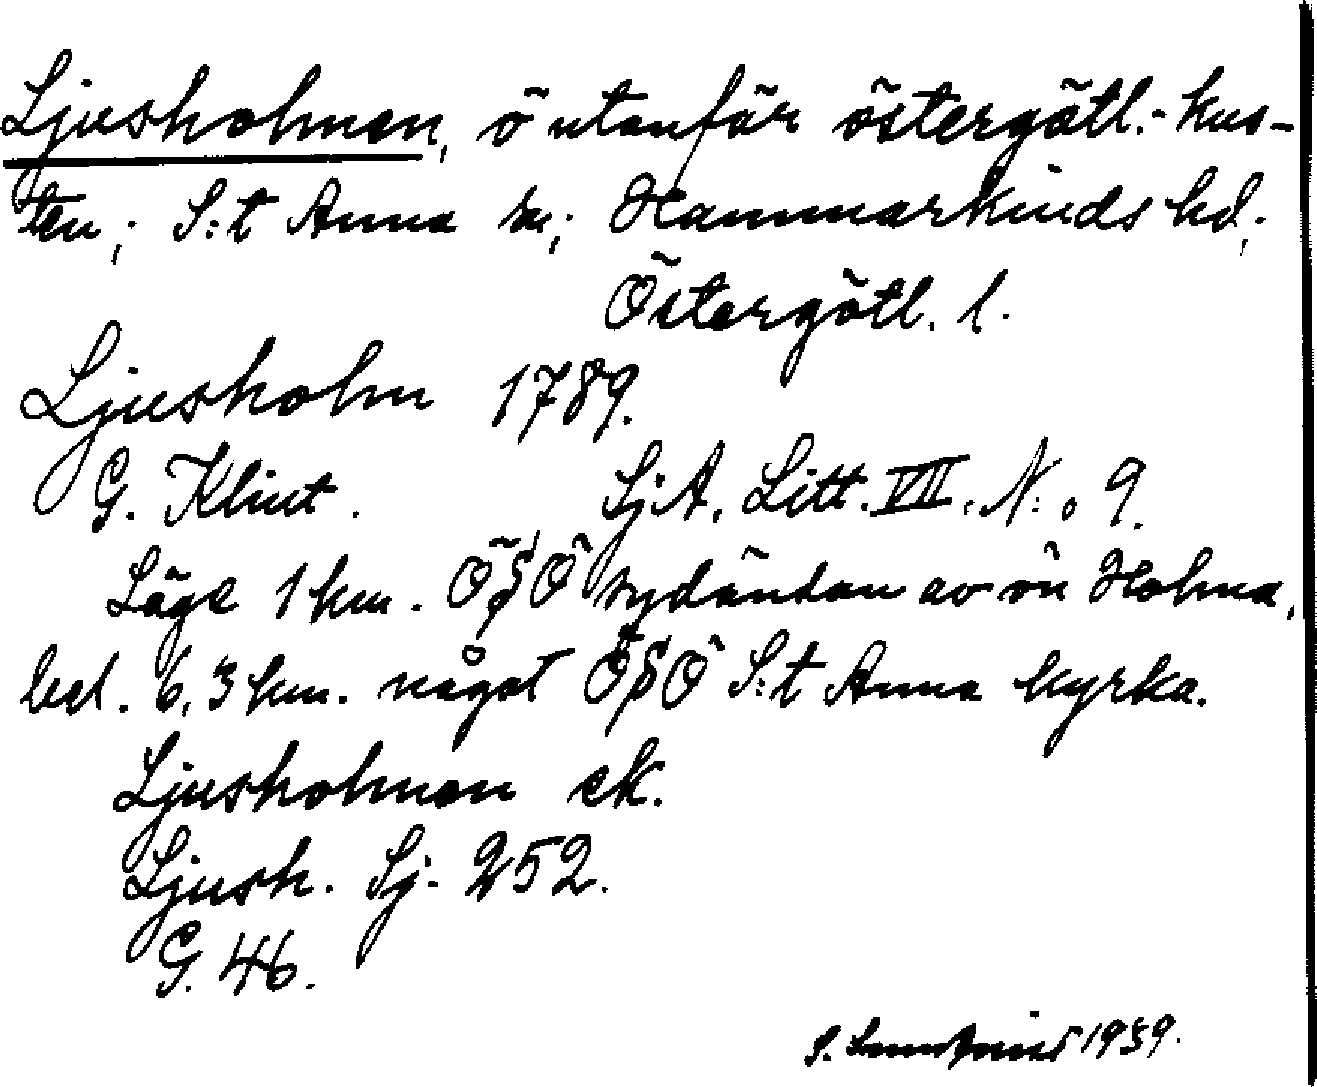 Ljusholmen, ö utanför östergötl.-kus-
ten; S:t Anna sn; Hammarkinds hd,
Östergötl. l.
Ljusholm 1789.
G. Klint. SjA, Litt. VII. N:o 9.
Läge 1 km. ÖSÖ sydändan av ön Holma,
bel. 6,3 km. något ÖSÖ S:t Anna kyrka.
Ljusholmen ek.
Ljush. Sj. 252.
G. 46.
S. 1939.